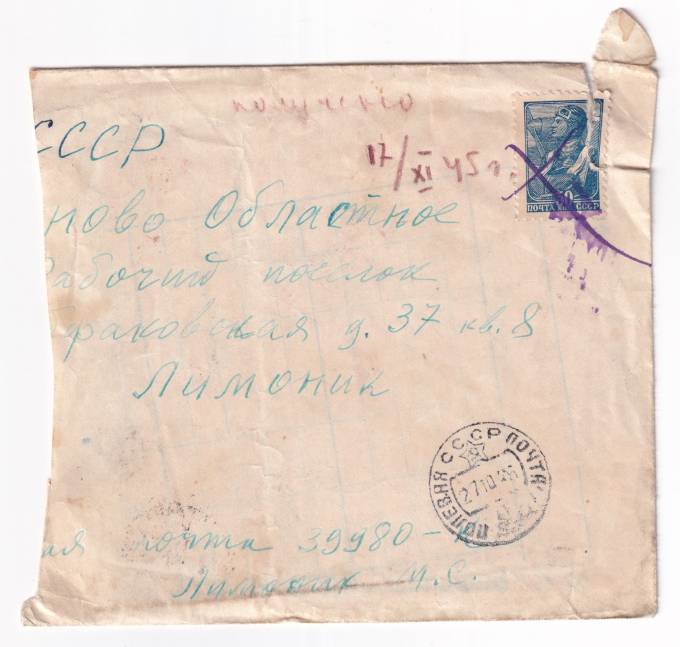 получено
17/XI 45 г.
СССР
ПОЧТА СССР
ново Областное
рабочий поселок
раковская д. 37 кв. 8
Лимоник
ПОЛЕВАЯ СССР ПОЧТА
27 10
ая почта 39980-
Лимоник М.С.